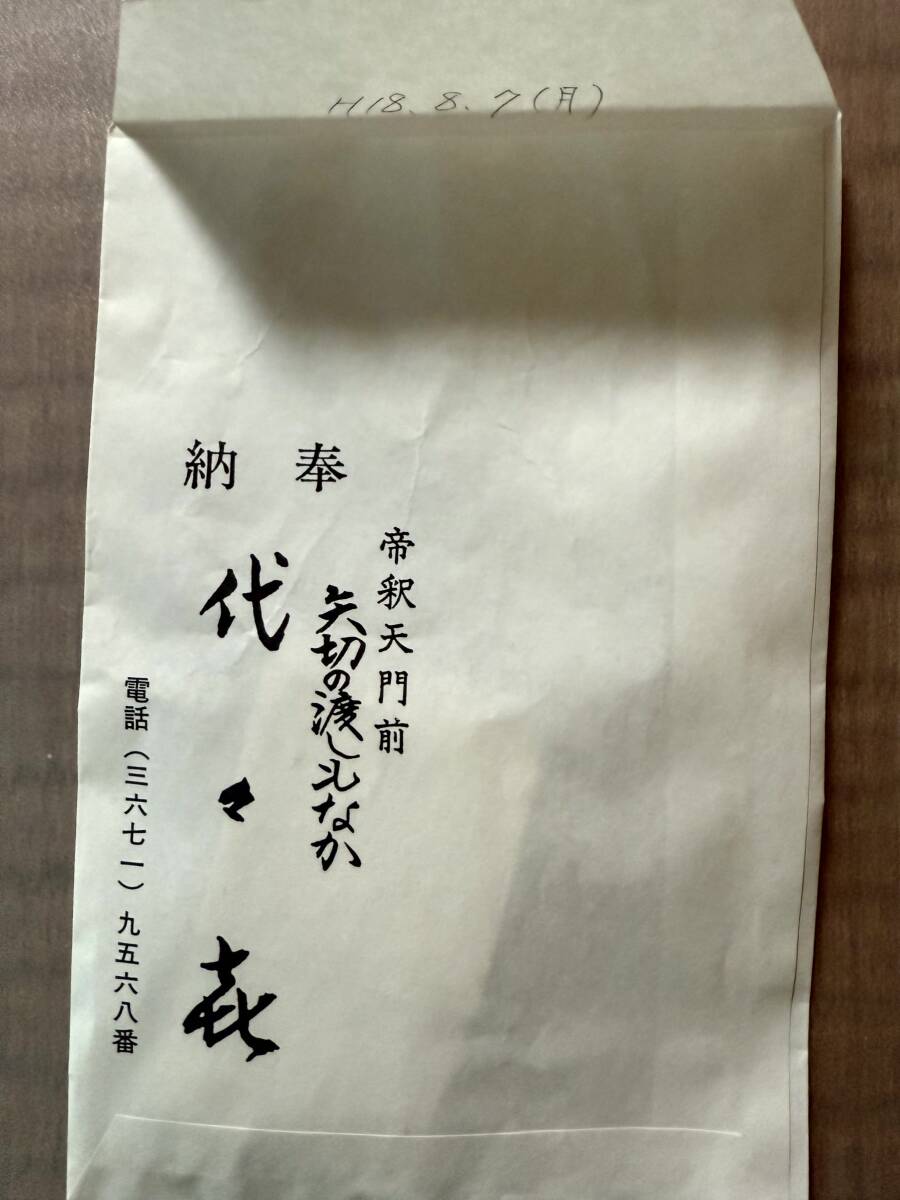 H18.8.7(月)
奉納
帝釈天門前
矢切の渡しもなか
代々㐂
電話(三六七一)九五六八番